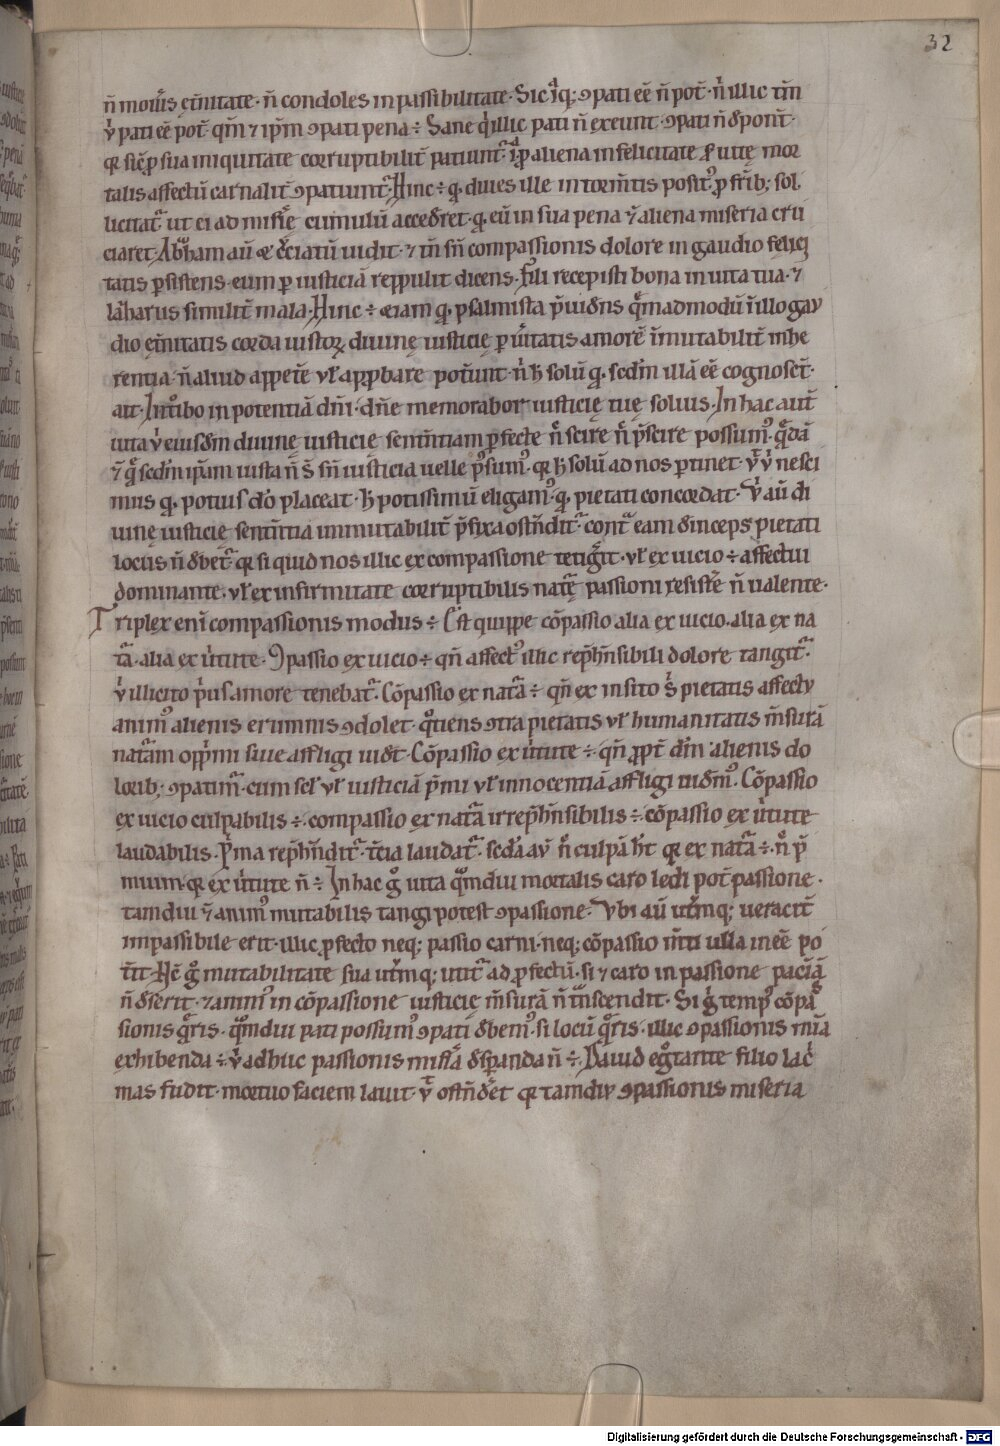 32
n̄ moueris et̄nitate · n̄ condoles in passibilitate · Sic itaq; ꝯpati eē n̄ pot̄ · nͥ illic tm̄
vͥ pati eē pot̄ qm̄ ⁊ ipm̄ ꝯpati pena ÷ Sane qͥ illic pati n̄ exeunt · ꝯpati n̄ dep̄ont̄ ·
qꝛ sic̄ ꝓ sua iniquitate corruptibilit̄ patiunt᷑ · ita ꝓ aliena infelicitate
talis affectū carnalit̄ ꝯpatiunt᷑ · Hinc ÷ qꝫ diues ille in torm̄tis posit᷒ ꝓ frīb; sol
licitat᷑ · ut ei ad misīe cumulū accedr̄et · qꝫ eū in sua pena ⁊ aliena miseria cru
ciaret · Abraham aū uidit · ⁊ tn̄ sn̄ compassionis dolore in gaudio felici
tatis ꝑsistens · eum ꝑ iusticiā reppulit dicens · Fili recepisti bona in uita tua · ⁊
lazarus similit̄ mala · Hinc ÷ etiam qꝫ psalmista p̄uidens qͣmadmodū in illo gau
dio et̄nitatis corda iustoꝝ diuinę iusticię ꝑ uītatis amorē īmutabilit̄ inhe
rentia · n̄ aliud appetere uł approbare pot̄unt · nͥ h̄ solū qꝫ scdm̄ illā eē cognoscēt ·
ait · Introibo in potentiā dn̄i · dn̄e memorabor iusticię tuę solius · In hac aut̄
uita vͥ eiusdm̄ diuinę iusticię sentn̄tiam ꝑfecte nͨ scire nͨ p̄scire possum᷒ · quedā
÷ qͣ scdm̄ ipsam iusta n̄ s̄ sn̄ iusticia uelle possum᷒ · qꝛ h̄ solū ad nos ꝑtinet · ut vͥ nesci
mus qͥ potius dō placeat · h̄ potissimū eligam᷒ · qͥ pietati concordat · Vͥ aū di
uinę iusticie sentn̄tia immutabilit̄ p̄fixa ostn̄dit᷑ · cont̄ eam deinceps pietati
locus n̄ debet᷑ · qꝛ si quid nos illic ex compassione tetigerit · uł ex uicio ÷ affectu
dominante · uł ex infirmitate corruptibilis natūę passioni resistere n̄ ualente ·
Triplex enī compassionis modus ÷ Est quippe cōpassio alia ex uicio · alia ex na
tūa · alia ex uͥtute · Ꝯpassio ex uicio ÷ qn̄ affect᷒ illic rep̄hn̄sibili dolore tangit᷑ ·
vͥ illicito pͥus amore tenebat᷑ · Cōpassio ex natūa ÷ qn̄ ex insito s̄ pietatis affectu
anim᷒ alienis erumnis ꝯdolet · qͦtiens ꝯtra pietatis uł humanitatis m̄surā
natūam oppͥmi siue affligi uidet · Cōpassio ex uͥtute ÷ qn̄ ꝓpt̄ dm̄ alienis do
lorib; ꝯpatim᷑ · cum scł uł iusticiā p̄mi uł innocentiā affligi uidem᷒ · Cōpassio
ex uicio culpabilis ÷ · compassio ex natūa irrep̄hn̄sibilis ÷ · cōpassio ex uͥtute
laudabilis · Pͥma rep̄hn̄dit᷑ · t̄cia laudat᷑ · scd̄a au nͨ culpā ht̄ qꝛ ex natūa ÷ · nͨ p̄
mium · qꝛ ex uͥtute n̄ ÷ In hac gͦ uita qͣmdiu mortalis caro ledi pot̄ passione ·
tamdiu ⁊ anim᷒ mutabilis tangi potest ꝯpassione · Vbi aū ut̄mq; ueracit̄
impassibile erit · illic ꝓfecto neq; passio carni · neq; cōpassio m̄ti ulla inēe po
t̄it · Hc̄ gͦ mutabilitate sua ut̄mq; utit᷑ ad ꝓfectū · si ⁊ caro in passione paciā
n̄ deserit · ⁊ anim᷒ in cōpassione iusticię m̄surā n̄ tͣnscendit · Si gͦ temp᷒ cōpas
sionis qͣeris · qͣmdiu pati possum᷒ ꝯpati debem᷒ · si locū qͣeris · illic ꝯpassionis mīa
exhibenda ÷ · vͥ adhuc passionis misīa desperanda n̄ ÷ Dauid eg̅tante filio lacͥ
mas fudit · mortuo faciem lauit · ut ostn̄deret qꝛ tamdiu ꝯpassionis miseria
Digitalisierung gefördert durch die Deutsche Forschungsgemeinschaft - DFG